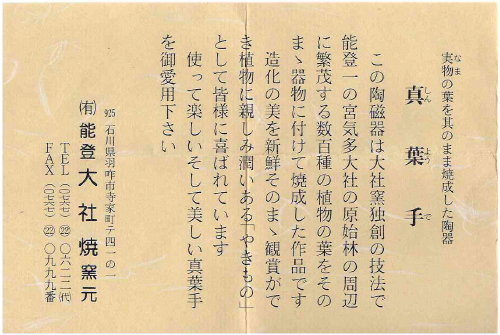 実物の葉を其のまま焼成した陶器
なま
真葉手
しんようで
この陶磁器は大社窯独創の技法で
能登一の宮気多大社の原始林の周辺
に繁茂する数百種の植物の葉をその
まゝ器物に付けて焼成した作品です
造化の美を新鮮そのまゝ観賞がで
き植物に親しみ潤いある「やきもの」
として皆様に喜ばれています
使って楽しいそして美しい真葉手
を御愛用下さい
925 石川県羽咋市寺家町テ四一の一
㈲能登大社焼窯元
TEL(〇七六七)㉒〇六一二(代)
FAX(〇七六七)㉒〇九九九番